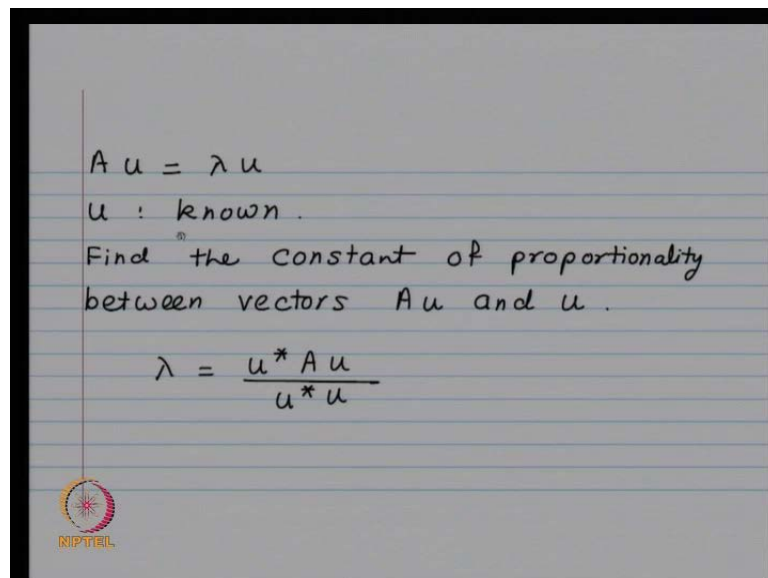 A u = λ u
u : known.
Find the constant of proportionality
between vectors A u and u.
λ = u* A u
u* u
NPTEL